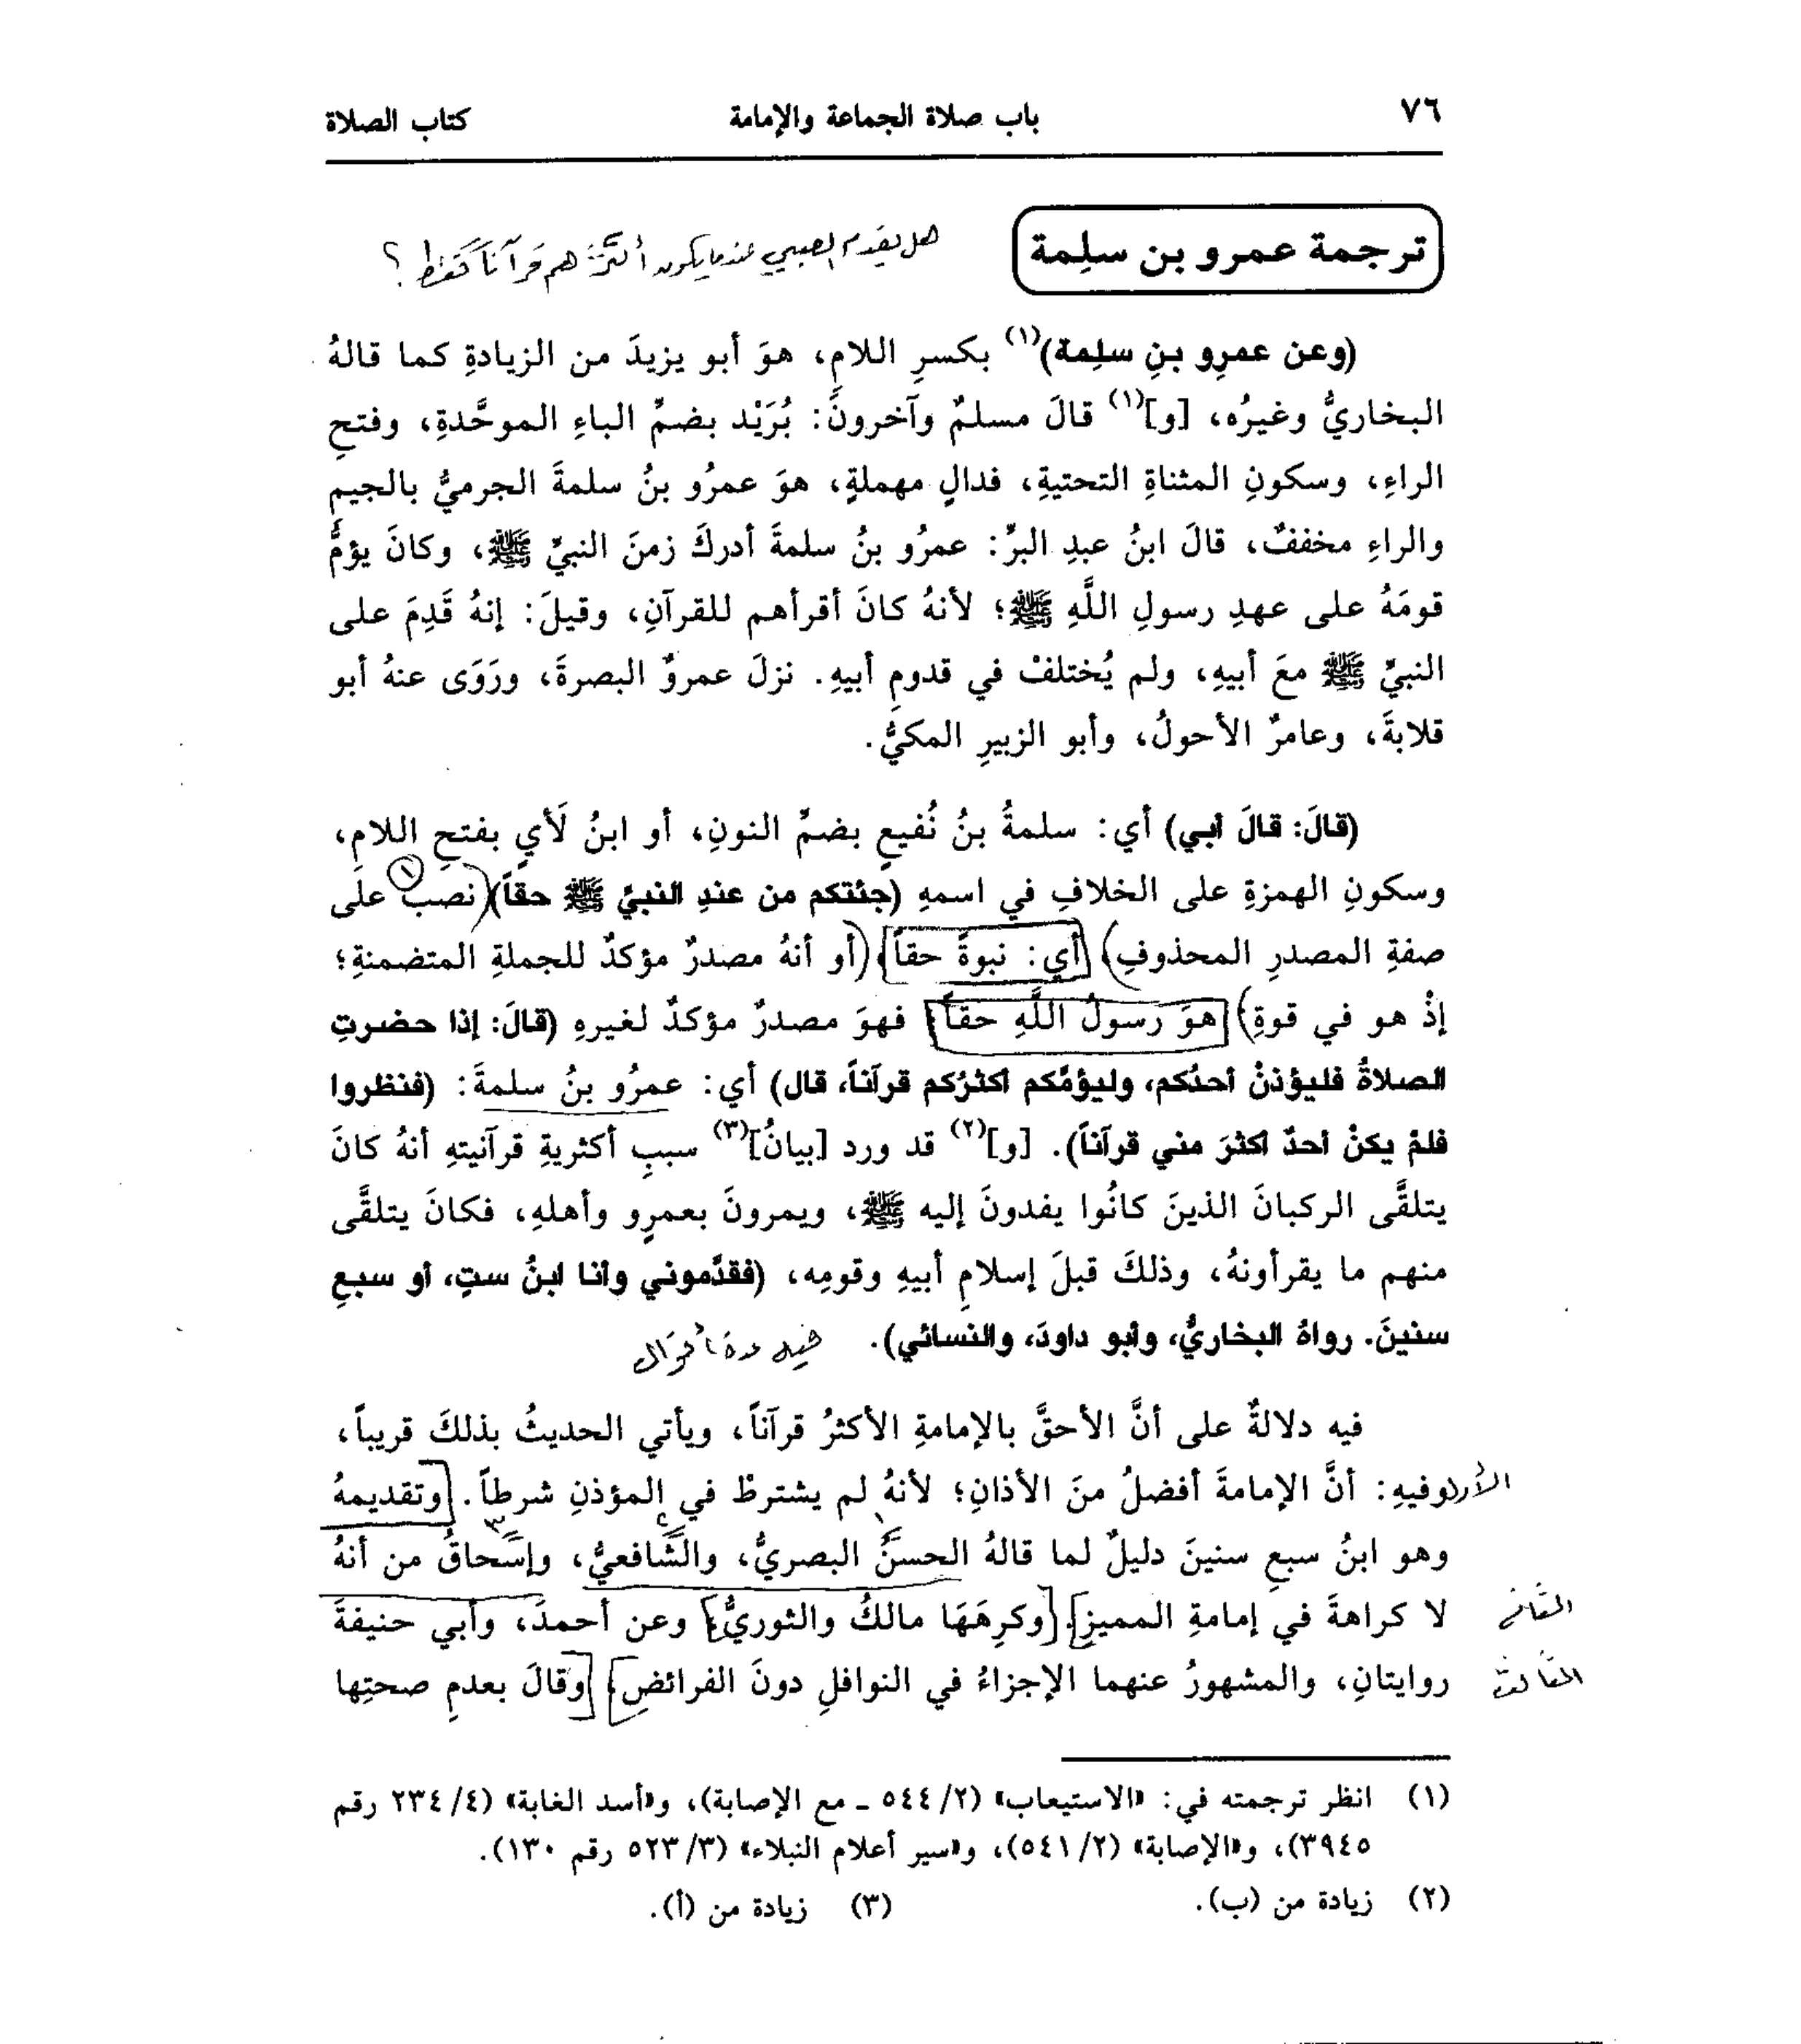 ٧٦ باب صلاة الجماعة والإمامة كتاب الصلاة
ترجمة عمرو بن سلِمة
هل يقدم الصبي عندما يكون أكثرهم قرآناً فقط؟
(وعن عمرِو بنِ سلِمة)(١) بكسرِ اللامِ، هوَ أبو يزيدَ من الزيادةِ كما قالهُ
البخاريُّ وغيرُه، [و](١) قالَ مسلمٌ وآخرونَ: بُرَيْد بضمِّ الباءِ الموحَّدةِ، وفتحِ
الراءِ، وسكونِ المثناةِ التحتيةِ، فدالٍ مهملةٍ، هوَ عمرُو بنُ سلمةَ الجرميُّ بالجيمِ
والراءِ مخففٌ، قالَ ابنُ عبدِ البرِّ: عمرُو بنُ سلمةَ أدركَ زمنَ النبيِّ ﷺ، وكانَ يؤمُّ
قومَهُ على عهدِ رسولِ اللَّهِ ﷺ؛ لأنهُ كانَ أقرأهم للقرآنِ، وقيلَ: إنهُ قَدِمَ على
النبيِّ ﷺ معَ أبيهِ، ولم يُختلفْ في قدومِ أبيهِ. نزلَ عمروٌ البصرةَ، ورَوَى عنهُ أبو
قلابةَ، وعامرٌ الأحولُ، وأبو الزبيرِ المكيُّ.
(قالَ: قالَ أبي) أي: سلمةُ بنُ نُفيعٍ بضمِّ النونِ، أو ابنُ لَأيٍ بفتحِ اللامِ،
وسكونِ الهمزةِ على الخلافِ في اسمهِ (جئتكم من عندِ النبيِّ ﷺ حقاً) نصبٌ على
١
صفةِ المصدرِ المحذوفِ) [أي: نبوةً حقاً] (أو أنهُ مصدرٌ مؤكدٌ للجملةِ المتضمنةِ؛
إذْ هو في قوةِ) [هوَ رسولُ اللَّهِ حقاً] فهوَ مصدرٌ مؤكدٌ لغيرهِ (قالَ: إذا حضرتِ
الصلاةُ فليؤذنْ أحدُكم، وليؤمَّكم أكثرُكم قرآناً، قال) أي: عمرُو بنُ سلمةَ: (فنظروا
فلمْ يكنْ أحدٌ أكثرَ مني قرآناً). [و](٢) قد ورد [بيانُ](٣) سببِ أكثريةِ قرآنيتهِ أنهُ كانَ
يتلقَّى الركبانَ الذينَ كانُوا يفدونَ إليه ﷺ، ويمرونَ بعمرٍو وأهلهِ، فكانَ يتلقَّى
منهم ما يقرأونهُ، وذلكَ قبلَ إسلامِ أبيهِ وقومِه، (فقدَّموني وأنا ابنُ ستٍ، أو سبعِ
سنينَ. رواهُ البخاريُّ، وأبو داودَ، والنسائي).
فيه عدة أقوال
فيه دلالةٌ على أنَّ الأحقَّ بالإمامةِ الأكثرُ قرآناً، ويأتي الحديثُ بذلكَ قريباً،
وفيهِ: أنَّ الإمامةَ أفضلُ منَ الأذانِ؛ لأنهُ لم يشترطْ في المؤذنِ شرطاً. [وتقديمهُ
وهو ابنُ سبعِ سنينَ دليلٌ لما قالهُ الحسنُ البصريُّ، والشَّافعيُّ، وإسحاقُ من أنهُ
الثاني
لا كراهةَ في إمامةِ المميزِ]. [وكرِهَهَا مالكٌ والثوريُّ] وعن أحمدَ، وأبي حنيفةَ
الثالث
روايتانِ، والمشهورُ عنهما الإجزاءُ في النوافلِ دونَ الفرائضِ] [وقالَ بعدمِ صحتِها
(١) انظر ترجمته في: «الاستيعاب» (٢/ ٥٤٤ ـ مع الإصابة)، و«أسد الغابة» (٤/ ٢٣٤ رقم
٣٩٤٥)، و«الإصابة» (٢/ ٥٤١)، و«سير أعلام النبلاء» (٣/ ٥٢٣ رقم ١٣٠).
(٢) زيادة من (ب). (٣) زيادة من (أ).